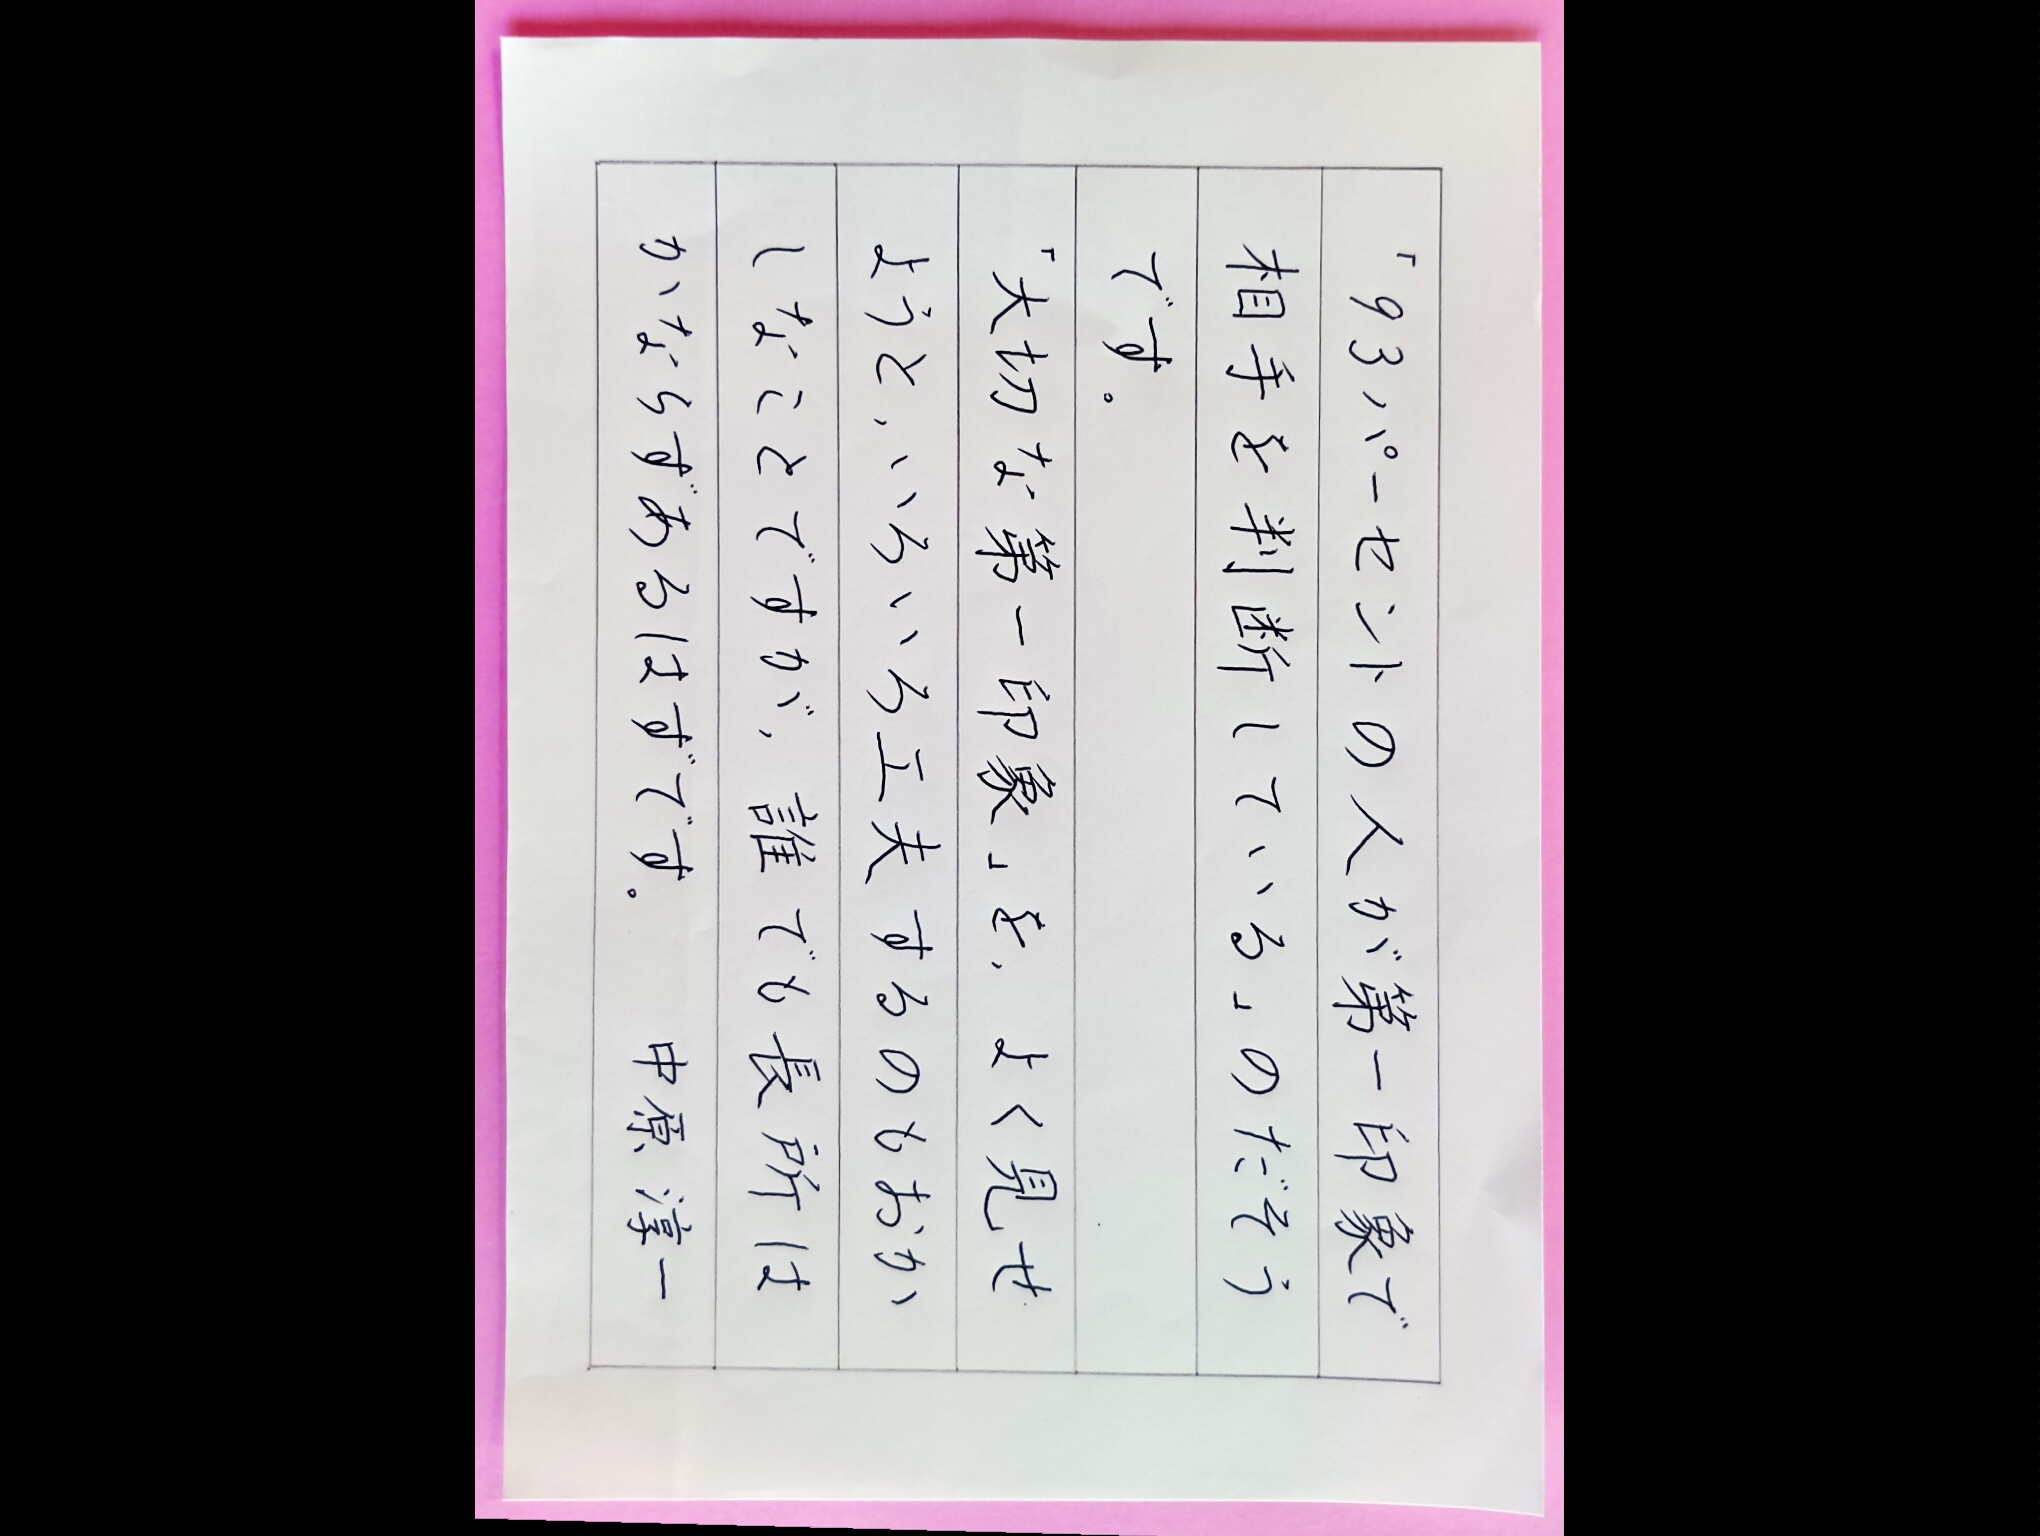 「93パーセントの人が第一印象で
相手を判断している」のだそう
です。
「大切な第一印象」を、よく見せ
ようと、いろいろ工夫するのもおか
しなことですが、誰でも長所は
かならずあるはずです。 中原淳一